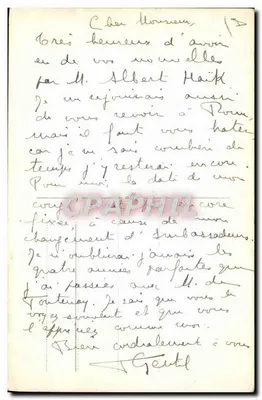 Cher Monsieur
Très heureux d'avoir
eu de vos nouvelles
par M. Albert
Je me réjouissais aussi
de vous revoir à Rome
mais il faut vous hâter
car je ne sais combien de
temps j'y resterai encore.
Pour moi, la date de mon
encore
fixée à cause de mon
changement d'Ambassadeur.
Je n'oublierai jamais les
quatre années parfaites que
j'ai passées avec M. de
Fontenay. Je sais que vous le
voyez souvent et que vous
l'appréciez comme moi.
Bien cordialement à vous
Gentil
CPAPHIL